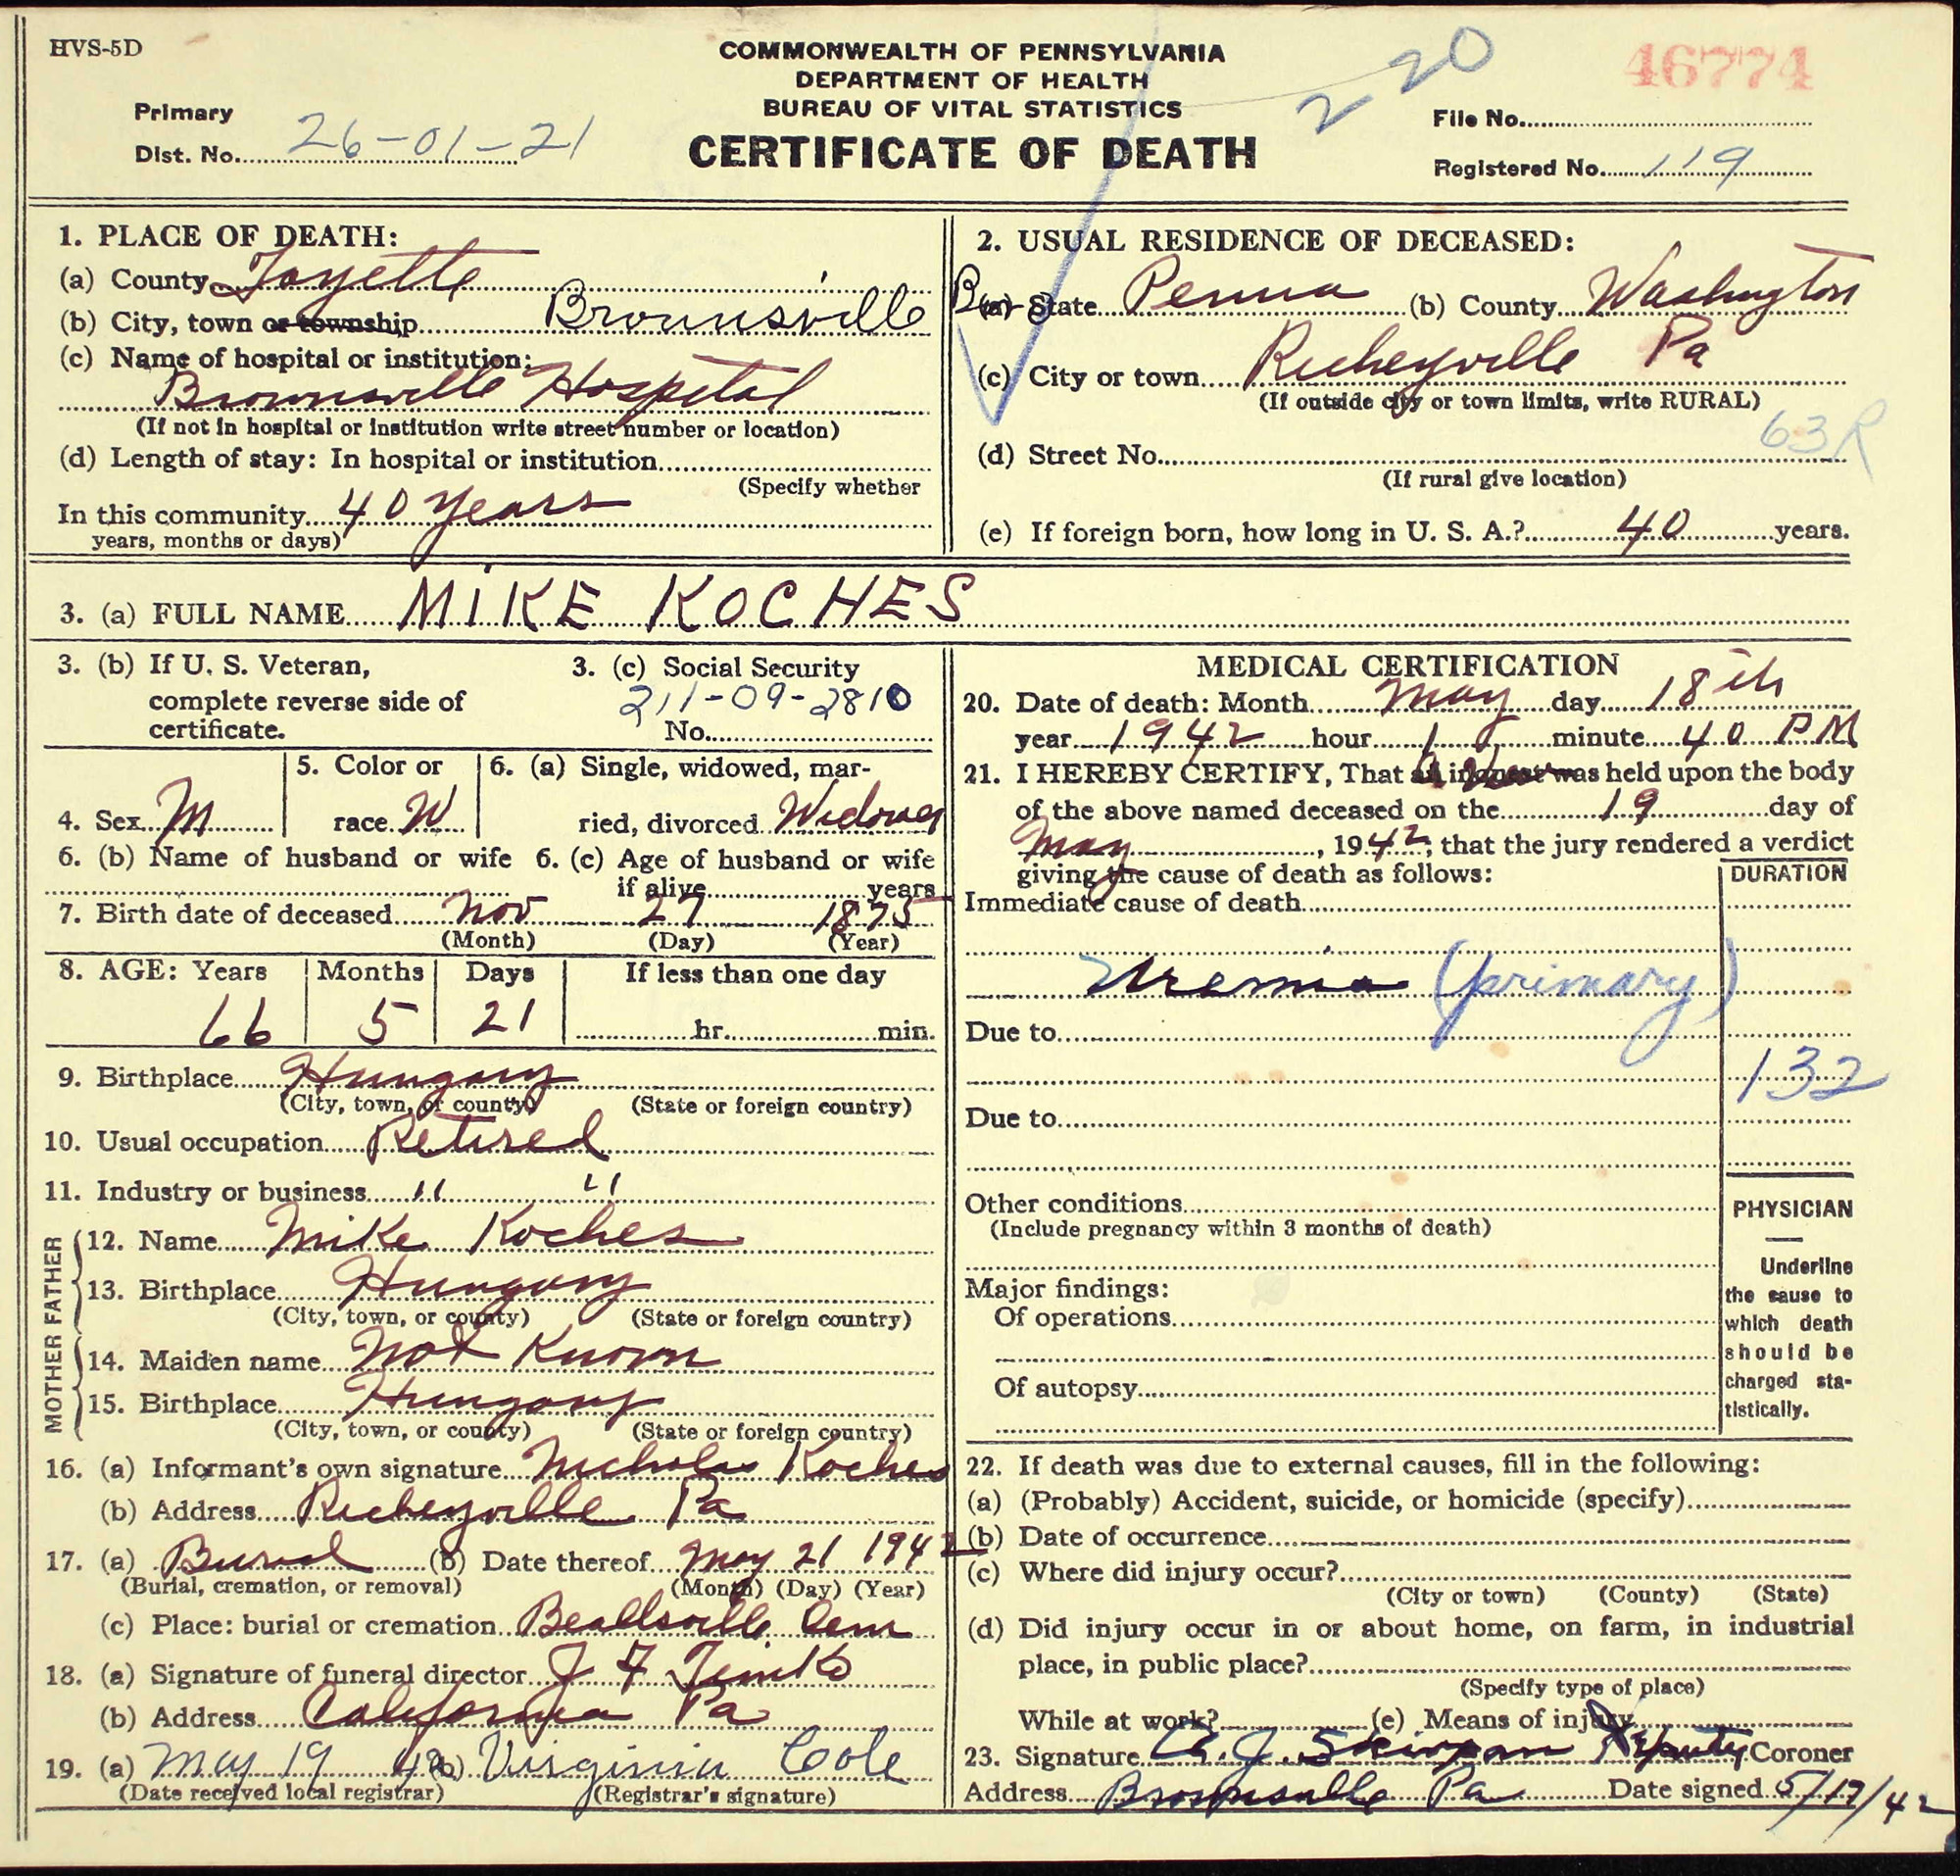 HVS-5D
COMMONWEALTH OF PENNSYLVANIA
DEPARTMENT OF HEALTH
BUREAU OF VITAL STATISTICS
CERTIFICATE OF DEATH
220
46774
Primary
Dist. No. 26-01-21
File No.
Registered No. 119
1. PLACE OF DEATH:
(a) County Fayette
(b) City, town or township Brownsville Boro
(c) Name of hospital or institution:
Brownsville Hospital
(If not in hospital or institution write street number or location)
(d) Length of stay: In hospital or institution
(Specify whether
In this community 40 years
years, months or days)
2. USUAL RESIDENCE OF DECEASED:
(a) State Penna (b) County Washington
(c) City or town Richeyville Pa
(If outside city or town limits, write RURAL)
63R
(d) Street No.
(If rural give location)
(e) If foreign born, how long in U. S. A.? 40 years.
3. (a) FULL NAME MIKE KOCHES
3. (b) If U. S. Veteran,
complete reverse side of
certificate.
3. (c) Social Security
211-09-2810
No.
4. Sex M
5. Color or
race W
6. (a) Single, widowed, mar-
ried, divorced Widower
6. (b) Name of husband or wife
6. (c) Age of husband or wife
if alive years
7. Birth date of deceased Nov 27 1875
(Month) (Day) (Year)
8. AGE: Years Months Days If less than one day
66 5 21 hr. min.
9. Birthplace Hungary
(City, town, or county) (State or foreign country)
10. Usual occupation Retired
11. Industry or business " "
FATHER
12. Name Mike Koches
13. Birthplace Hungary
(City, town, or county) (State or foreign country)
MOTHER
14. Maiden name Not Known
15. Birthplace Hungary
(City, town, or county) (State or foreign country)
16. (a) Informant's own signature Nicholas Koches
(b) Address Richeyville Pa
17. (a) Burial (b) Date thereof May 21 1942
(Burial, cremation, or removal) (Month) (Day) (Year)
(c) Place: burial or cremation Beallsville Cem
18. (a) Signature of funeral director J F
(b) Address California Pa
19. (a) May 19 42 (b) Virginia Cole
(Date received local registrar) (Registrar's signature)
MEDICAL CERTIFICATION
20. Date of death: Month May day 18th
year 1942 hour 1 minute 40 PM
21. I HEREBY CERTIFY, That a View was held upon the body
of the above named deceased on the 19 day of
May, 1942; that the jury rendered a verdict
giving the cause of death as follows:
DURATION
Immediate cause of death
Uremia (primary)
Due to
132
Due to
Other conditions
(Include pregnancy within 3 months of death)
Major findings:
Of operations
Of autopsy
PHYSICIAN
Underline
the cause to
which death
should be
charged sta-
tistically.
22. If death was due to external causes, fill in the following:
(a) (Probably) Accident, suicide, or homicide (specify)
(b) Date of occurrence
(c) Where did injury occur?
(City or town) (County) (State)
(d) Did injury occur in or about home, on farm, in industrial
place, in public place?
(Specify type of place)
While at work? (e) Means of injury
23. Signature Deputy Coroner
Address Brownsville Pa Date signed 5/19/42